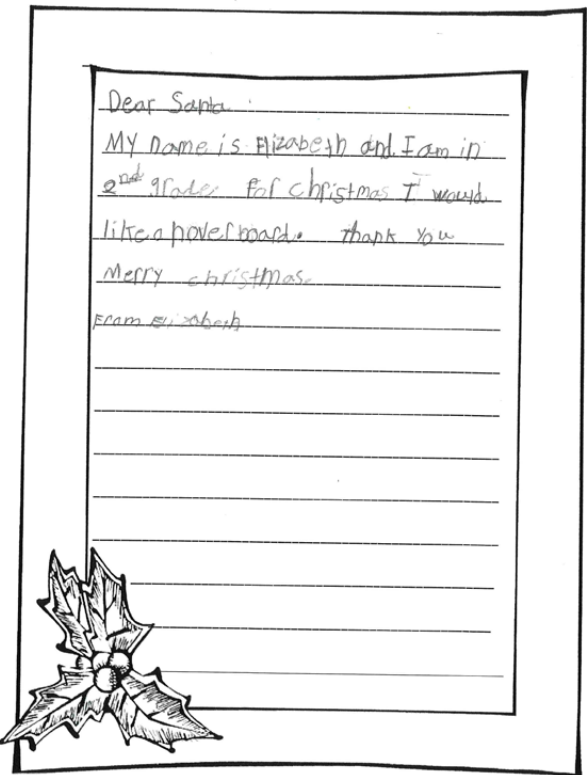 Dear Santa
My name is Elizabeth and I am in
2nd grade. For christmas I would
like a hover board. Thank you
Merry christmas.
From Elizabeth